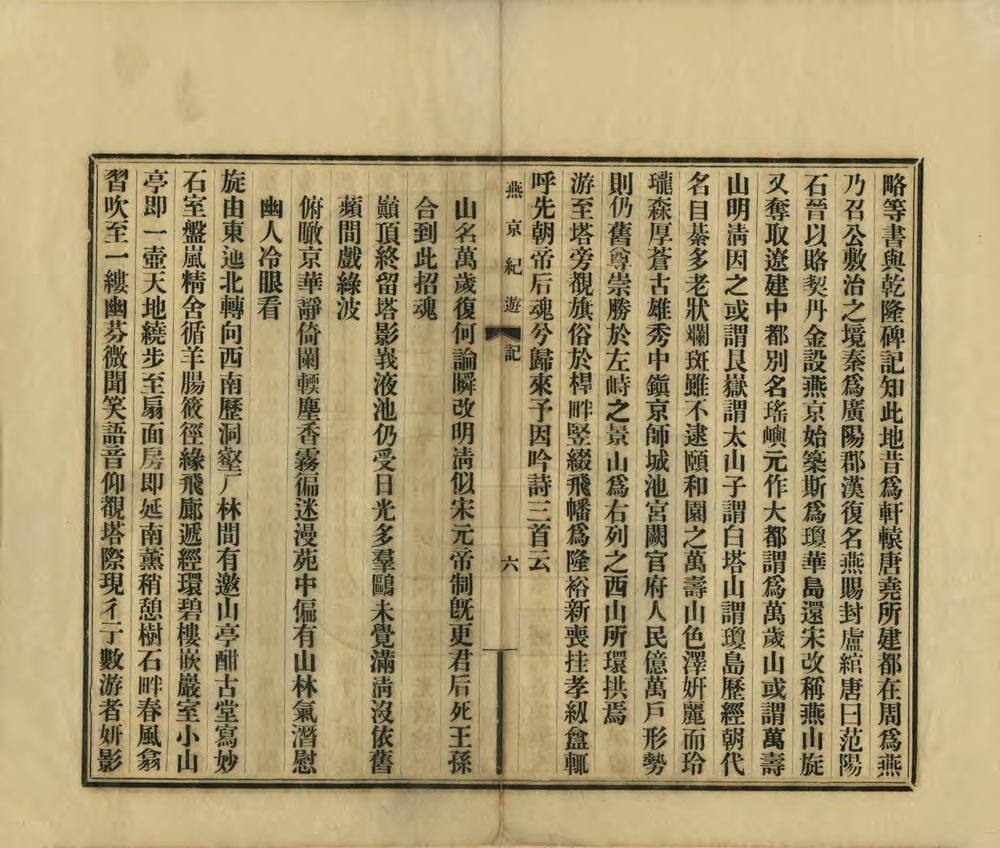 略等書與乾隆碑記知此地昔爲軒轅唐堯所建都在周爲燕
乃召公敷治之境秦爲廣陽郡漢復名燕賜封盧綰唐曰范陽
石晉以賂契丹金設燕京始築斯爲瓊華島還宋改稱燕山旋
又奪取遼建中都別名瑤嶼元作大都謂爲萬歲山或謂萬壽
山明淸因之或謂艮嶽謂太山子謂白塔山謂瓊島歷經朝代
名目綦多老狀斕斑雖不逮頤和園之萬壽山色澤姸麗而玲
瓏森厚蒼古雄秀中鎭京師城池宮闕官府人民億萬戶形勢
則仍舊尊崇勝於左峙之景山爲右列之西山所環拱焉
游至塔旁觀旗俗於桿畔竪綴飛幡爲隆裕新喪挂孝紉盦輒
呼先朝帝后魂兮歸來予因吟詩三首云
燕京紀遊 記 六
山名萬歲復何論瞬改明淸似宋元帝制旣更君后死王孫
合到此招魂
巔頂終留塔影峩液池仍受日光多羣鷗未覺滿淸沒依舊
蘋間戲綠波
俯瞰京華靜倚闌輭塵香霧徧迷漫苑中偏有山林氣潛慰
幽人冷眼看
旋由東迤北轉向西南歷洞壑厂林間有邀山亭酣古堂寫妙
石室盤嵐精舍循羊腸筱徑緣飛廊遞經環碧樓嵌巖室小山
亭即一壺天地繞步至扇面房即延南薰稍憩樹石畔春風翕
習吹至一縷幽芬微聞笑語音仰觀塔際現彳亍數游者姸影